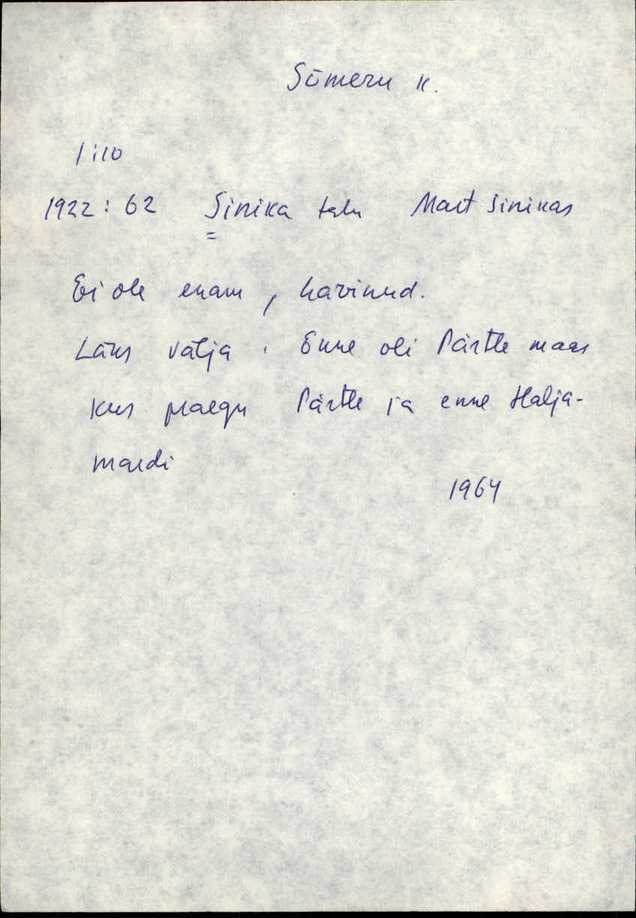 Sõmeru k.
1:10
1922: 62 Sinika talu Mart Sinikas
Ei ole enam, hävinud.
Läks välja. Enne oli Pärtle maas
kus praegu Pärtle ja enne Halja-
mardi
1964